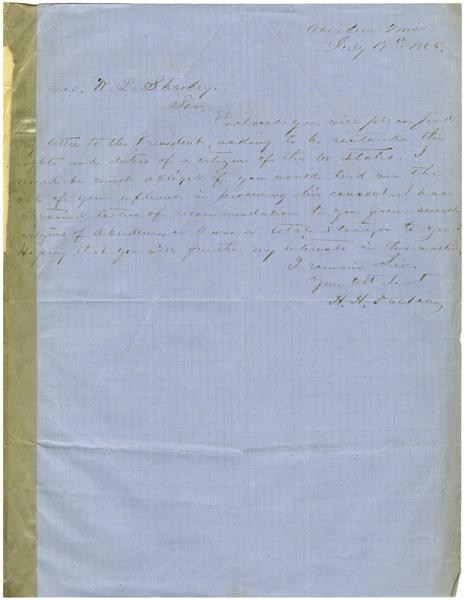 Aberdeen Miss
July 17th 1865.
W. L. Sharkey.
Sir,
Enclosed you will please find
my letter to the President, asking to be restored the
rights and duties of a citizen of the U. States. I
would be much obliged if you would lend me the
aid of your influence in procuring his consent. I have
letters of recommendation to you from several
citizens of Aberdeen as I was a total Stranger to you.
Hoping that you will further my interests in this matter
I remain Sir.
Your Obt Svt
H. H.